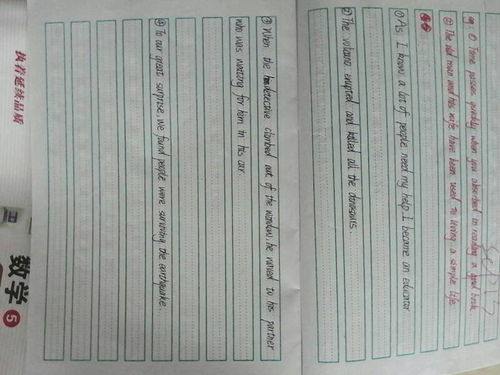 eg. ① Time passes quickly when you absorbed in reading a good book
④ The old man and his wife have been used to living a simple life.
① As I know a lot of people need my help I became an educator
② The volcano erupted and killed all the dinosaurs.
③ When the detective climbed out of the window, he waved to his partner
who was waiting for him in his car
④ To our great surprise, we found people were surviving the earthquake.
执着延续品质
数学 5